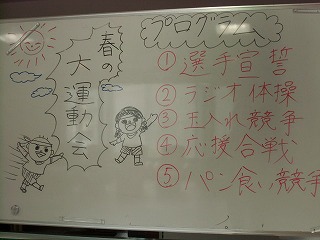 春の
大運動会
プログラム
① 選手宣誓
② ラジオ体操
③ 玉入れ競争
④ 応援合戦
⑤ パン食い競争